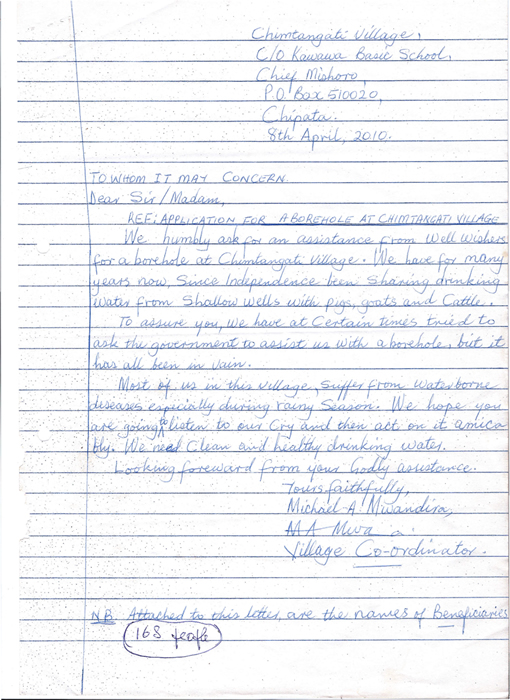 Chimtangati Village,
C/O Kawawa Basic School,
Chief Mishoro,
P.O. Box 510020,
Chipata.
8th April, 2010.
TO WHOM IT MAY CONCERN.
Dear Sir/Madam,
REF: APPLICATION FOR A BOREHOLE AT CHIMTANGATI VILLAGE
We humbly ask for an assistance from Well Wishers
for a borehole at Chimtangati Village. We have for many
years now, Since Independence been Sharing drinking
Water from Shallow Wells with pigs, goats and Cattle.
To assure you, we have at Certain times tried to
ask the government to assist us with a borehole, but it
has all been in vain.
Most of us in this village, Suffer from Waterborne
diseases especially during rainy Season. We hope you
are going to listen to our Cry and then act on it amica
bly. We need Clean and healthy drinking water.
Looking foreward from your Godly assistance.
Yours faithfully,
Michael A Mwandira,
M A Mwa
Village Co-ordinator.
NB Attached to this letter, are the names of Beneficiaries
168